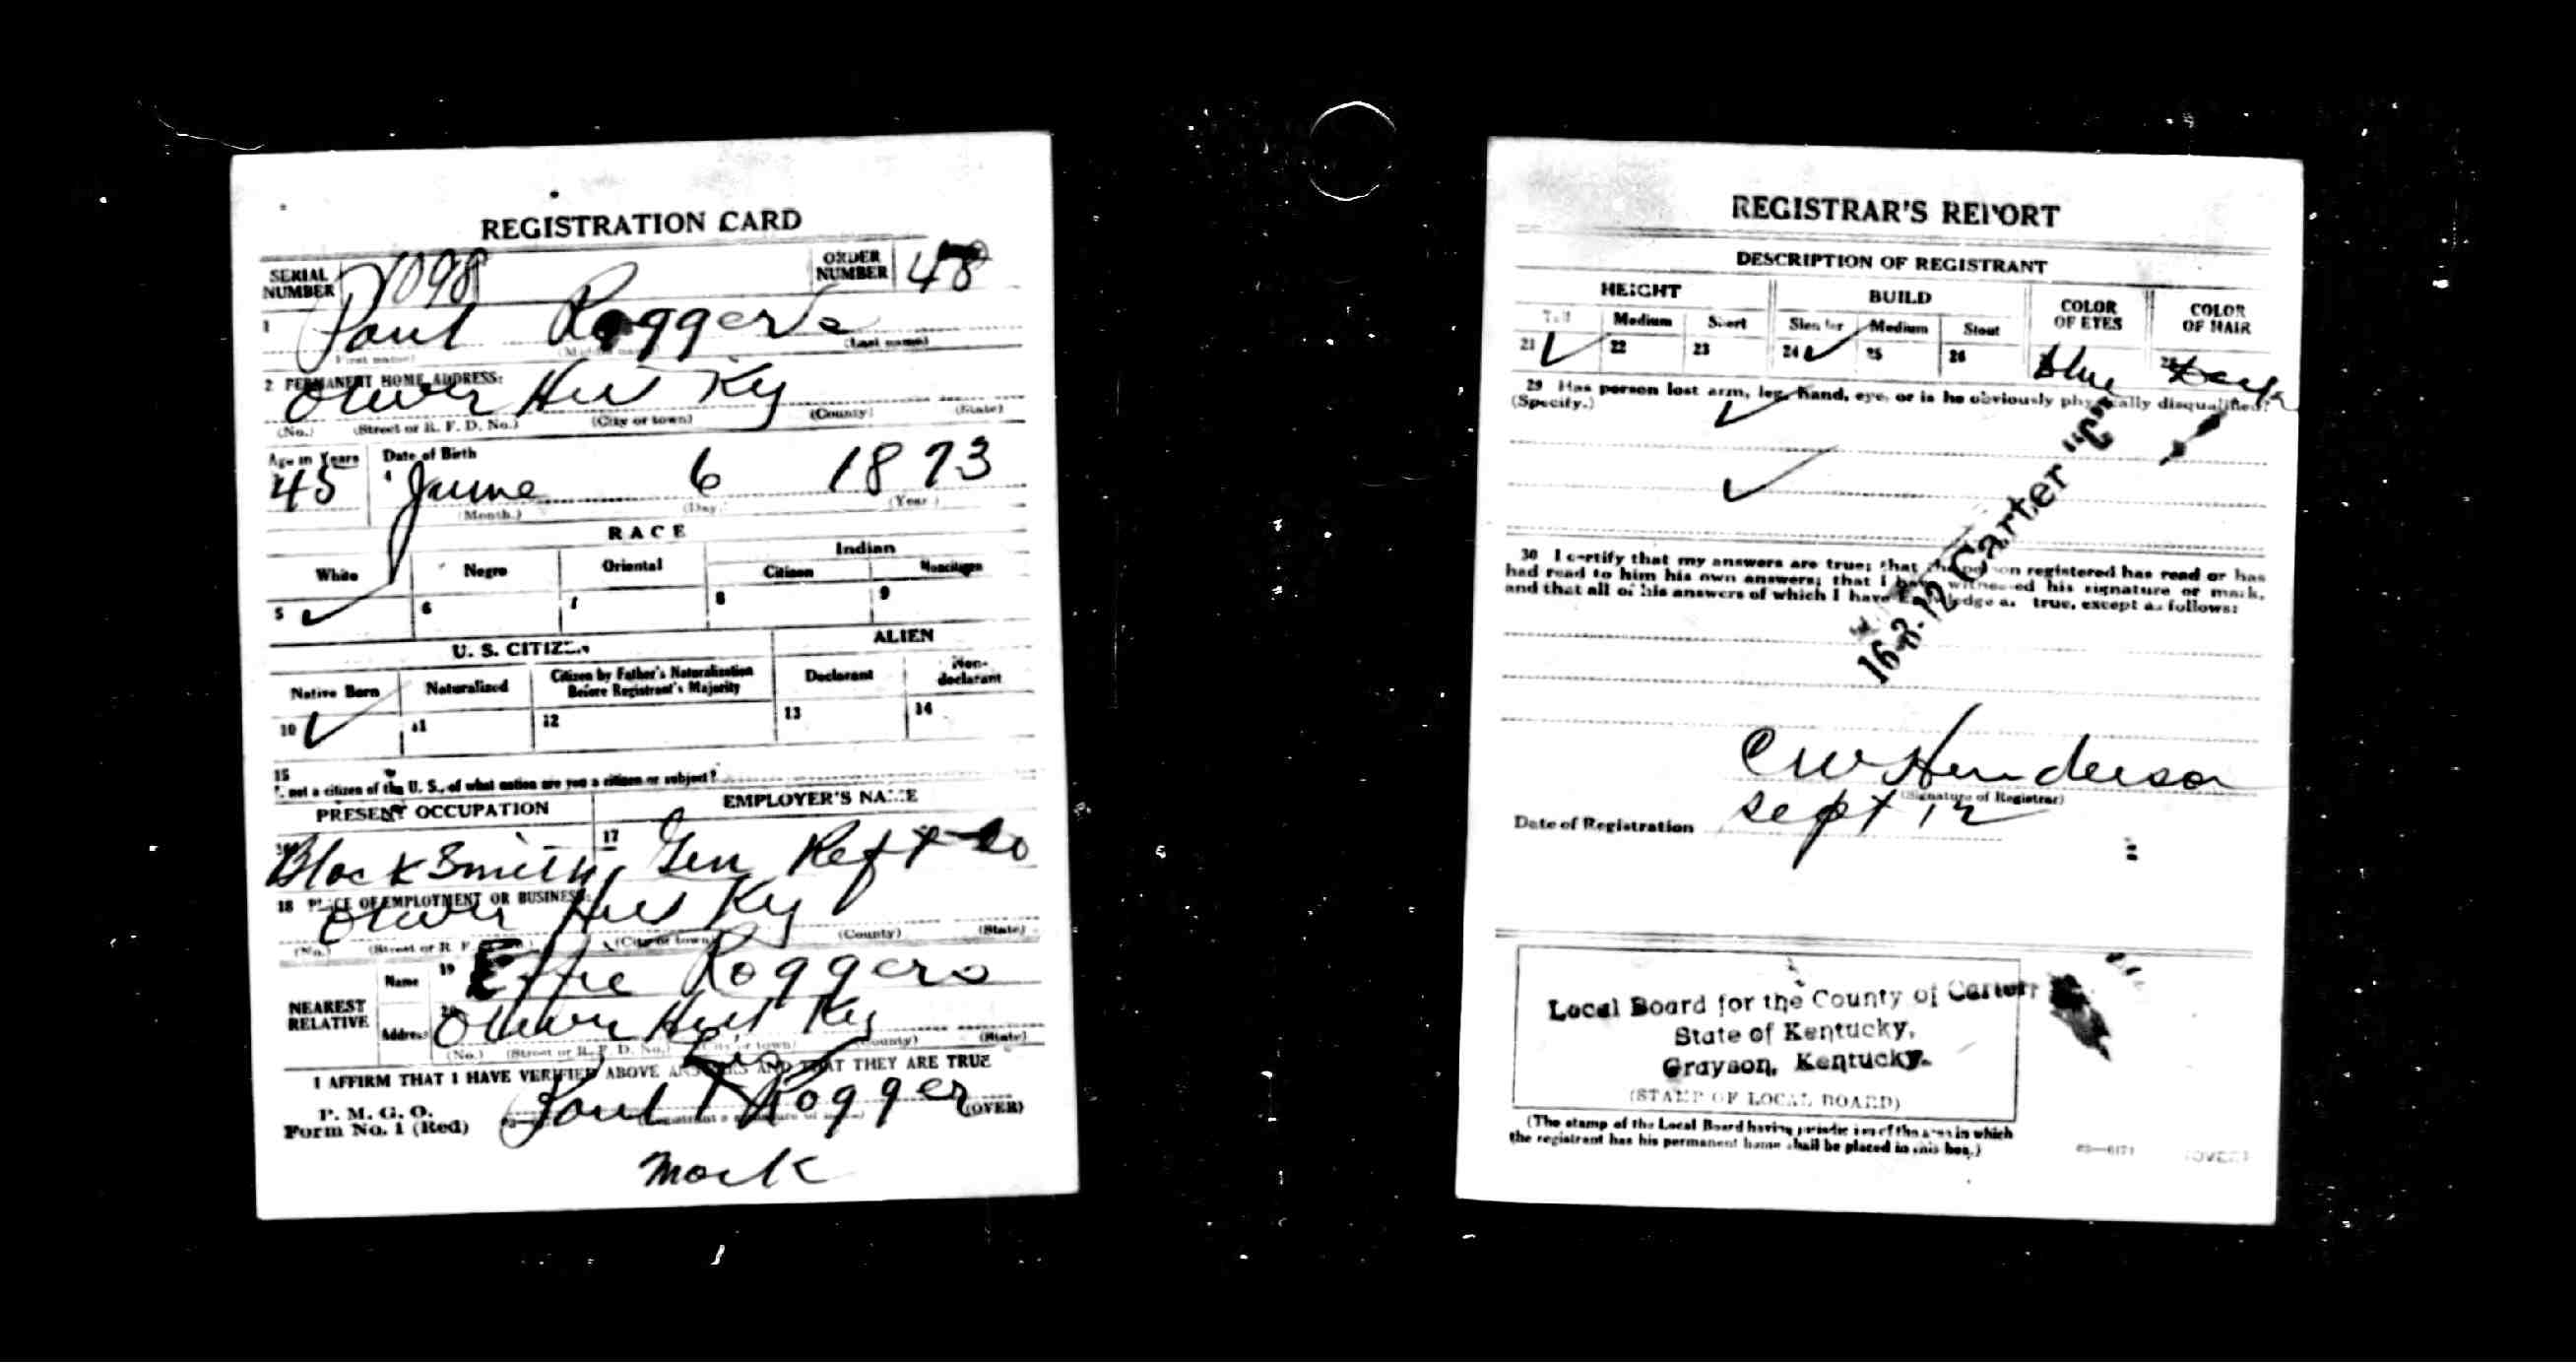 REGISTRATION CARD
SERIAL NUMBER 1098 ORDER NUMBER 48
1 Paul Roggers
(First name) (Last name)
2 PERMANENT HOME ADDRESS:
Oliver Hill Ky
(No.) (Street or R. F. D. No.) (City or town) (County) (State)
Age in Years Date of Birth
45 4 June 6 1873
(Month.) (Day.) (Year.)
RACE
White Negro Oriental Indian
Citizen Noncitizen
5 ✓ 6 7 8 9
U. S. CITIZEN ALIEN
Native Born Naturalized Citizen by Father's Naturalization Before Registrant's Majority Declarant Non-declarant
10 ✓ 11 12 13 14
15
If not a citizen of the U. S., of what nation are you a citizen or subject?
PRESENT OCCUPATION EMPLOYER'S NAME
Black Smith 17 Gen Reft Co
18 PLACE OF EMPLOYMENT OR BUSINESS:
Oliver Hill Ky
(No.) (Street or R. F. D. No.) (City or town) (County) (State)
NEAREST RELATIVE
Name 19 Effie Roggers
Address 20 Oliver Hill Ky
(No.) (Street or R. F. D. No.) (City or town) (County) (State)
I AFFIRM THAT I HAVE VERIFIED ABOVE ANSWERS AND THAT THEY ARE TRUE
P. M. G. O.
Form No. 1 (Red) Paul X Rogger (OVER)
mark
REGISTRAR'S REPORT
DESCRIPTION OF REGISTRANT
HEIGHT BUILD COLOR OF EYES COLOR OF HAIR
Tall Medium Short Slender Medium Stout
21 ✓ 22 23 24 ✓ 25 26 blue dark
29 Has person lost arm, leg, hand, eye, or is he obviously physically disqualified?
(Specify.)
30 I certify that my answers are true; that the person registered has read or has
had read to him his own answers; that I have witnessed his signature or mark,
and that all of his answers of which I have knowledge are true, except as follows:
16-2-12 Carter "C"
C W Henderson
(Signature of Registrar)
Date of Registration Sept 12
Local Board for the County of Carter,
State of Kentucky,
Grayson, Kentucky.
(STAMP OF LOCAL BOARD)
(The stamp of the Local Board having jurisdiction of the area in which
the registrant has his permanent home shall be placed in this box.)
03—6171 (OVER)